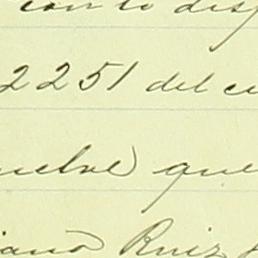 con lo disp
2251 del cu
uelve que
iana Ruiz